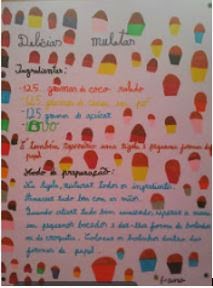 Delícias mulatas
Ingredientes:
-125 gramas de coco ralado
-125 gramas de cacau em pó
-125 gramas de açúcar
-1 ovo
É também necessário uma tigela e pequenas formas de
papel.
Modo de preparação:
Na tigela, misturar todos os ingredientes.
Amassar tudo bem com as mãos.
Quando estiver tudo bem amassado, separar a massa
em pequenos bocados e dar-lhe forma de bolinhas
ou de croquete. Colocar os bolinhos dentro das
formas de papel.